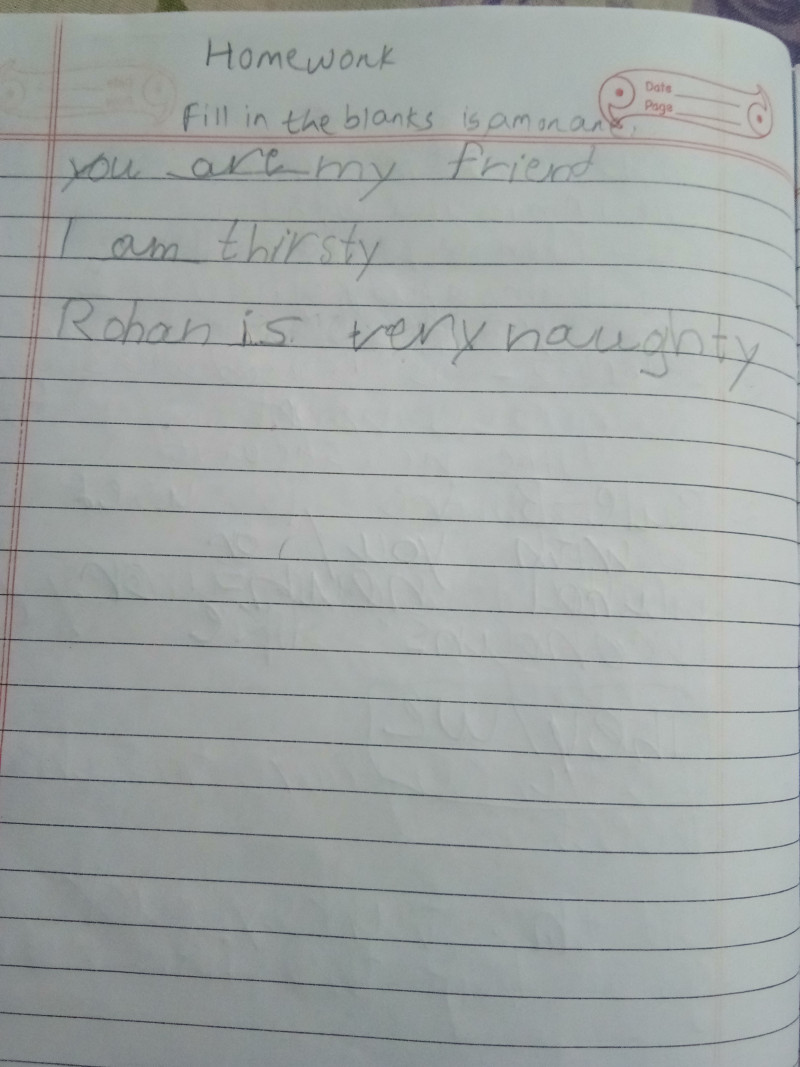 Homework
Date
Page
Fill in the blanks is am or are.
you are my friend
I am thirsty
Rohan is very naughty